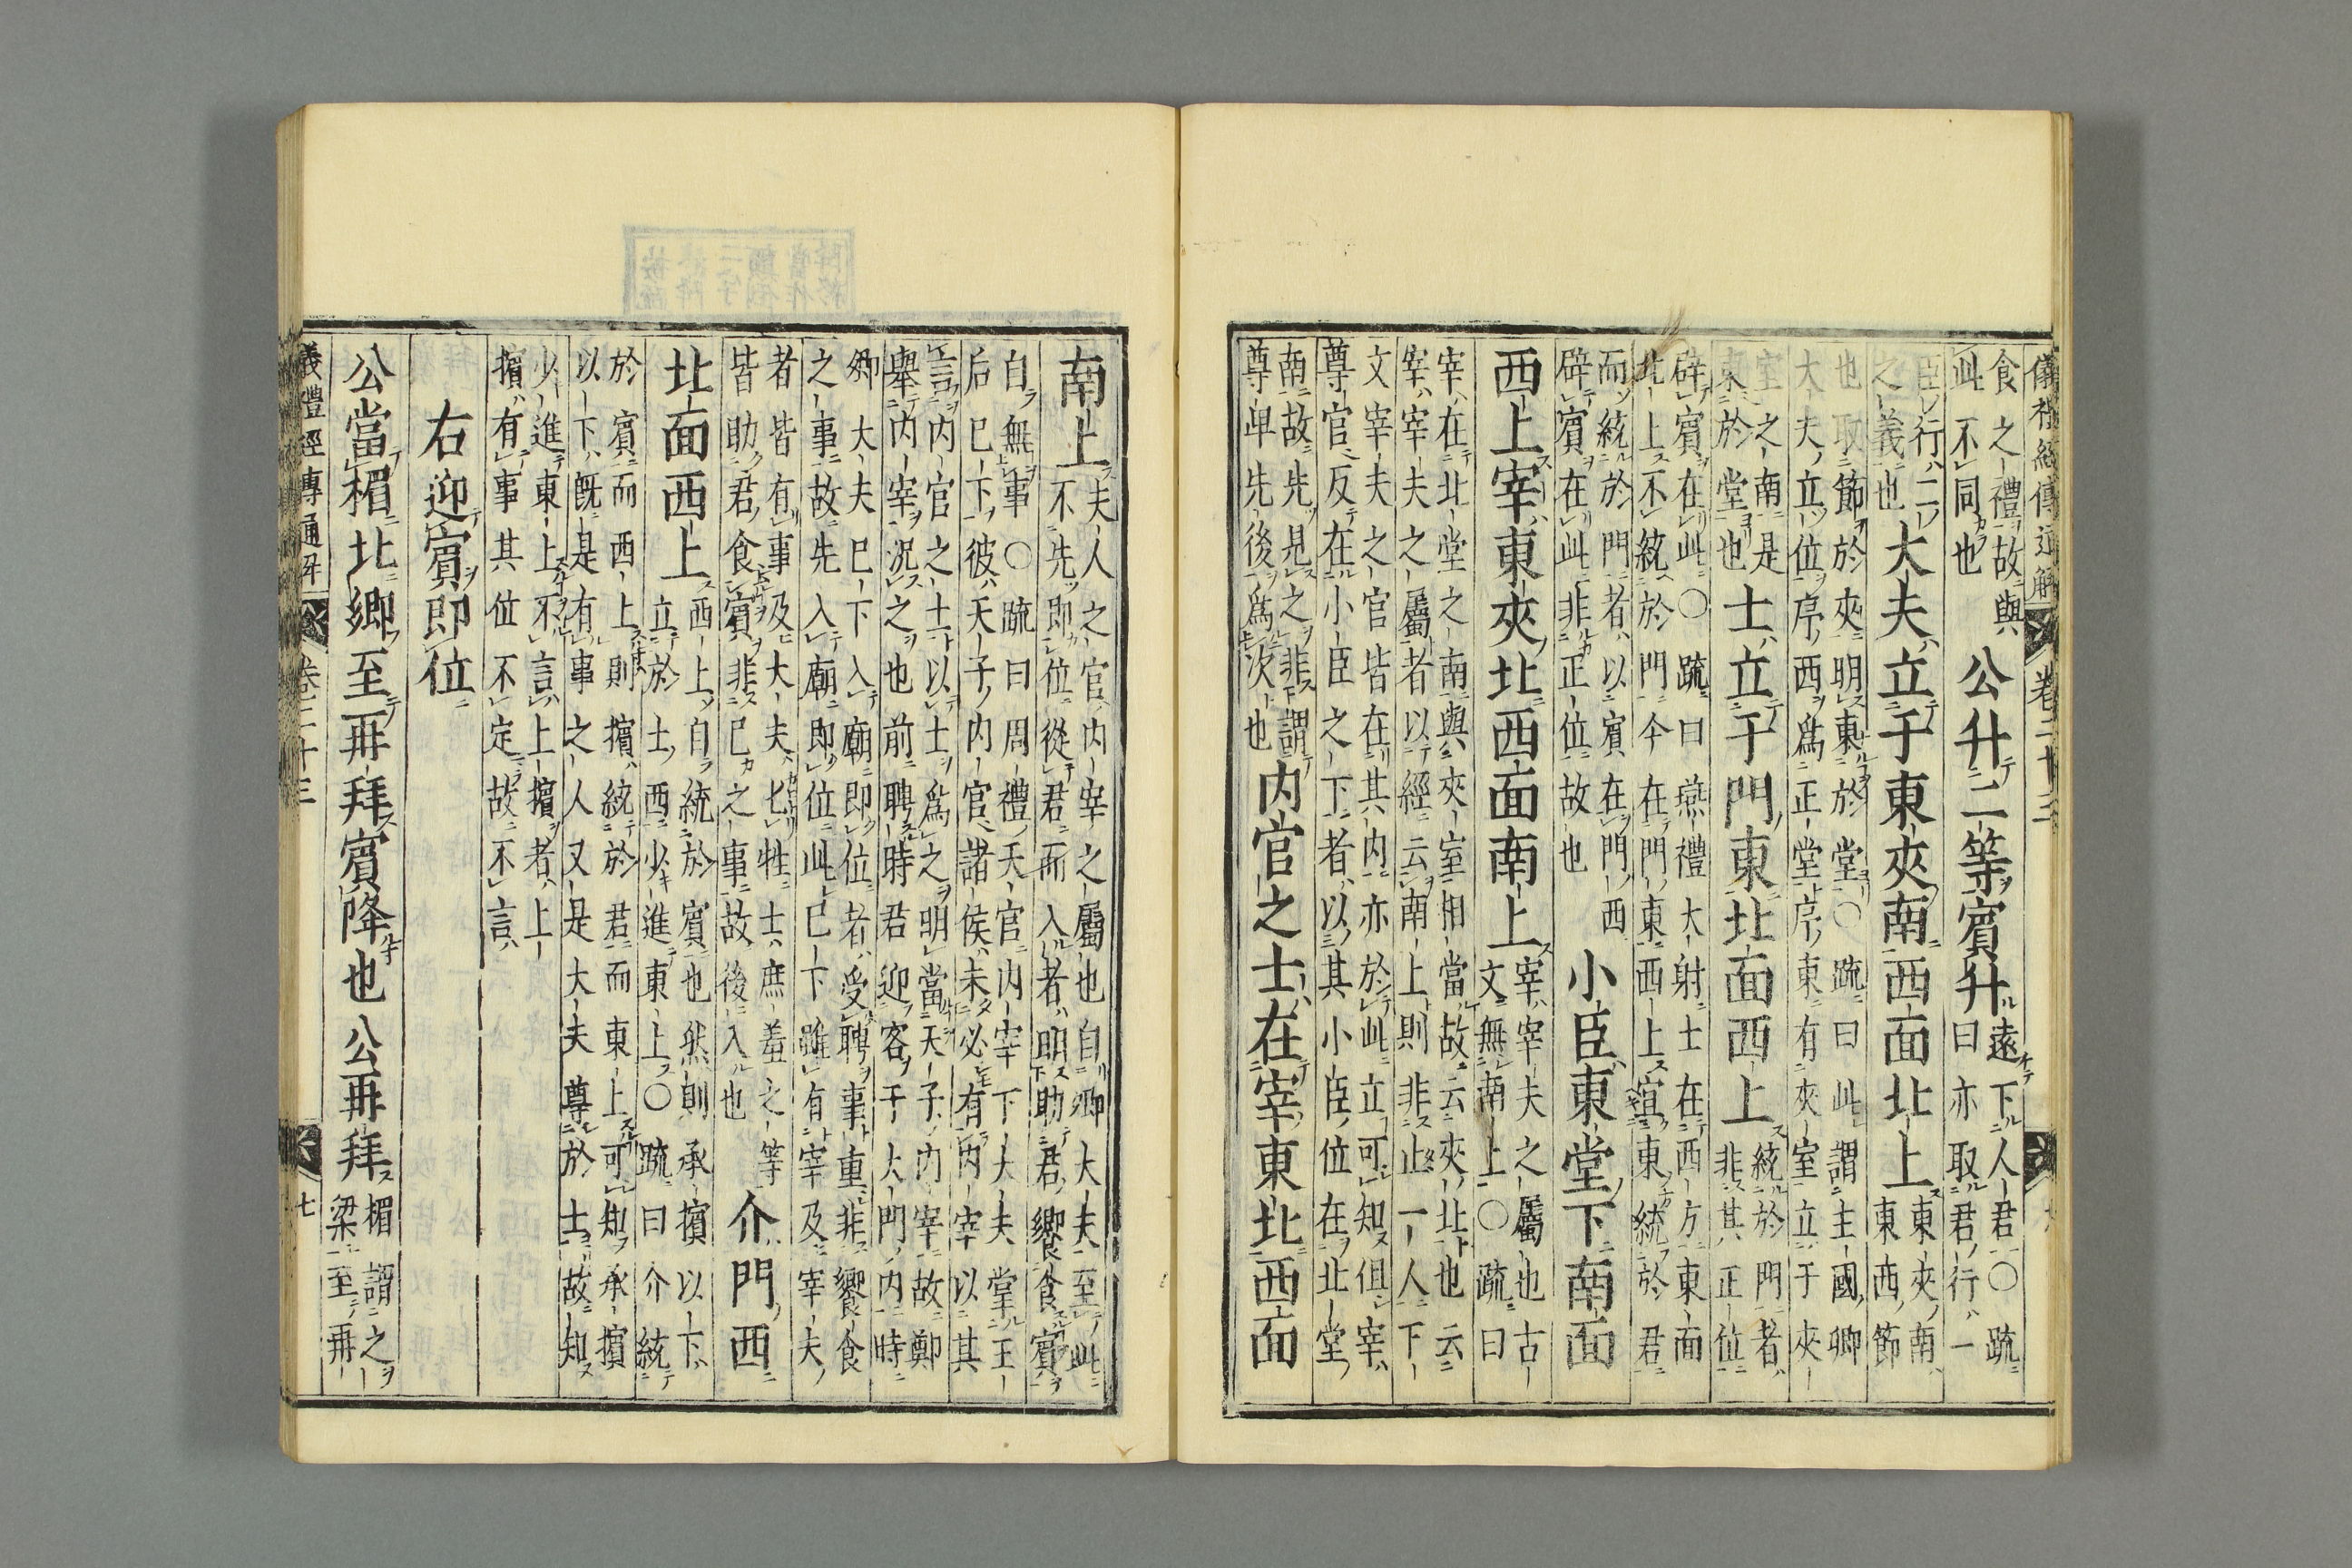 儀禮經傳通解 卷二十三
食之禮故與
此不同也
公升二等賓升
遠下人君○疏
曰亦取君行一
臣行二
之義也
大夫立于東夾南西面北上
東夾南
東西節
也取節於夾明東於堂○疏曰此謂主國卿
大夫立位序西爲正堂序東有夾室立于夾
室之南是
東於堂也
士立于門東北面西上
統於門者
非其正位
辟賓在此○疏曰燕禮大射士在西方東面
北上不統於門今在門東西上宜東統於君
而統於門者以賓在門西
辟賓在此非正位故也
小臣東堂下南面
西上宰東夾北西面南上
宰宰夫之屬也古
文無南上○疏曰
宰在北堂之南與夾室相當故云夾北也云
宰宰夫之屬者以經云南上則非止一人下
文宰夫之官皆在其内亦於此立可知但宰
尊官反在小臣之下者以其小臣位在北堂
南故先見之非謂
尊卑先後爲次也
内官之士在宰東北西面
南上
夫人之官内宰之屬也自卿大夫至此
不先即位從君而入者明助君饗食賓
自無事○疏曰周禮天官内宰下大夫掌王
后已下彼天子内官諸侯未必有内宰以其
言内官之士以士爲之明當天子内宰故鄭
舉内宰況之也前聘時君迎客于大門内時
卿大夫已下入廟即位者受聘事重非饗食
之事故先入廟即位此已下雖有宰及宰夫
者皆有事及大夫匕牲士庶羞之等
皆助君食賓非己之事故後入也
介門西
北面西上
西上自統於賓也然則承擯以下
立於士西少進東上○疏曰介統
於賓而西上則擯統於君而東上可知承擯
以下既是有事之人又是大夫尊於士故知
少進東上不言上擯者上
擯有事其位不定故不言
右迎賓即位
公當楣北鄉至再拜賓降也公再拜
楣謂之
梁至再
儀禮經傳通解 卷二十三 七